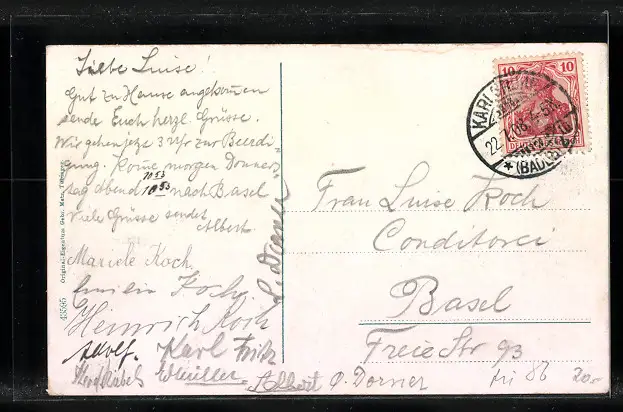 Liebe Luise!
Gut zu Hause angekommen
sende Euch herzl. Grüsse.
Wir gehen jetz 3 Uhr zur Beerdi-
gung. Kome morgen Donners-
tag abend 10 53 nach Basel
10 53
Viele Grüsse sendet
Albert
Mariele Koch.
Emilie Koch.
Heinrich Koch
Adolf. Karl Fritz
EMüller. Albert O. Dorner
L. Dorner
Original-Eigentum Gebr. Metz, Tübingen
43595
10 10
KARLSRUHE
22.1.08.
(BADEN)
Frau Luise Koch
Conditorei
Basel
Freie Str 93
86 20.-